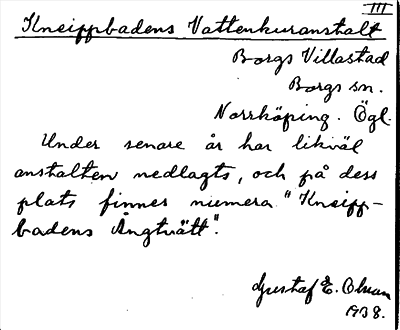 III
Kneippbadens Vattenkuranstalt
Borgs Villastad
Borgs sn.
Norrköping. Ögl.
Under senare år har likväl
anstalten nedlagts, och på dess
plats finnes numera "Kneipp-
badens Ångtvätt".
Gustaf E. Olsson
1938.